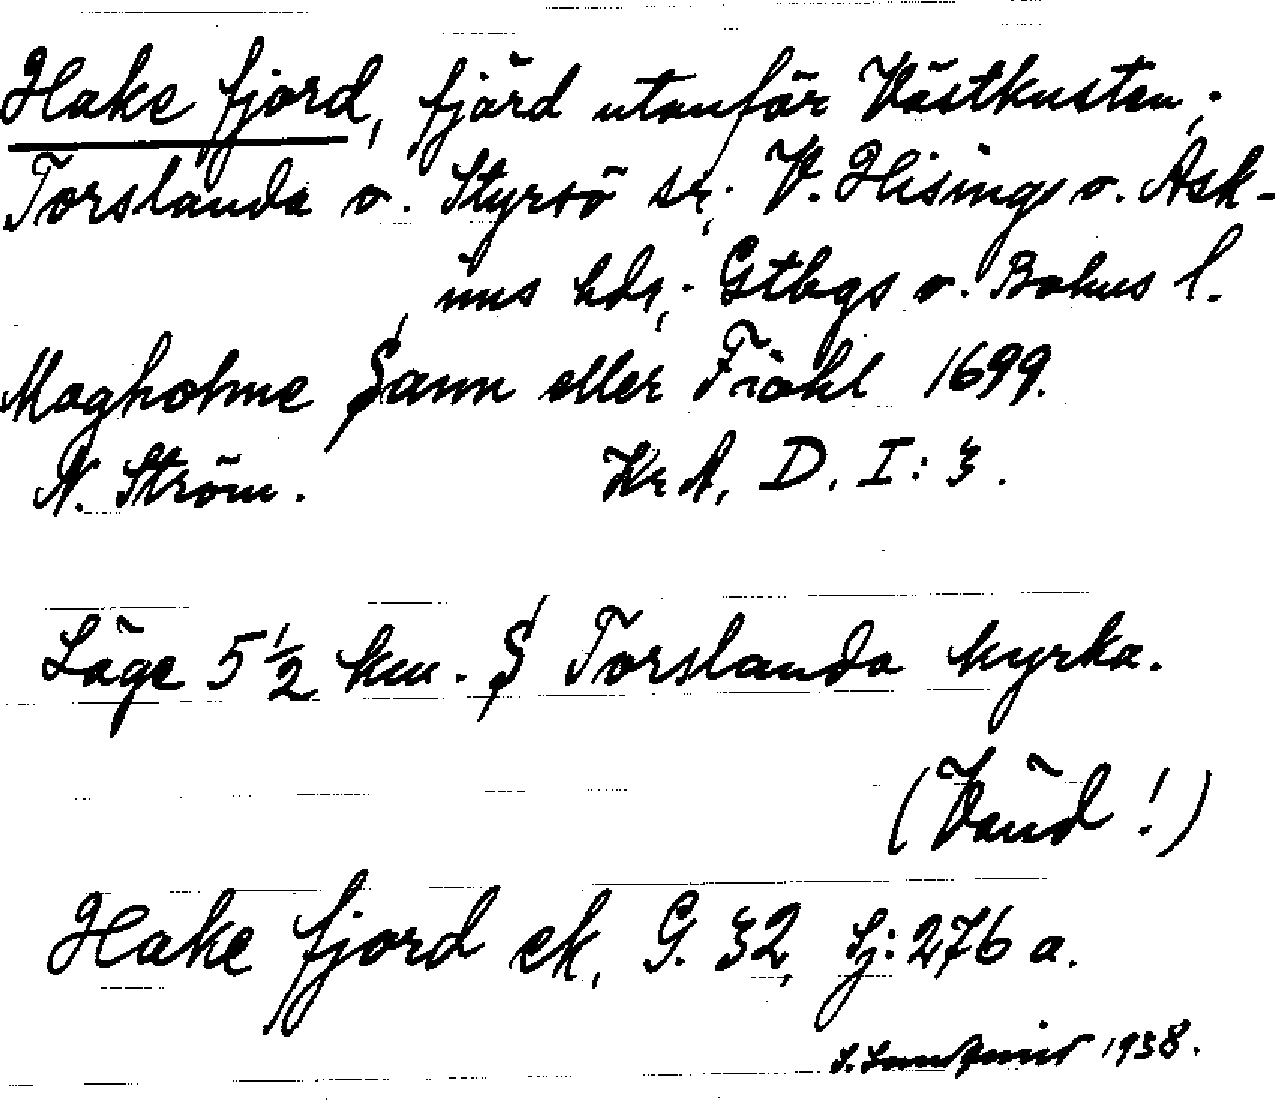 Hake fjord, fjärd utanför Västkusten;
Torslanda o. Styrsö sr; V. Hisings o. Ask-
ims hdr; Gtbgs o. Bohus l.
Magholme Sann eller Fiähl 1699.
N. Ström. KrA, D. I: 3.
Läge 5 1/2 km. S Torslanda kyrka.
(Vänd!)
Hake fjord ek, G. 32, Sj: 276 a.
1938.